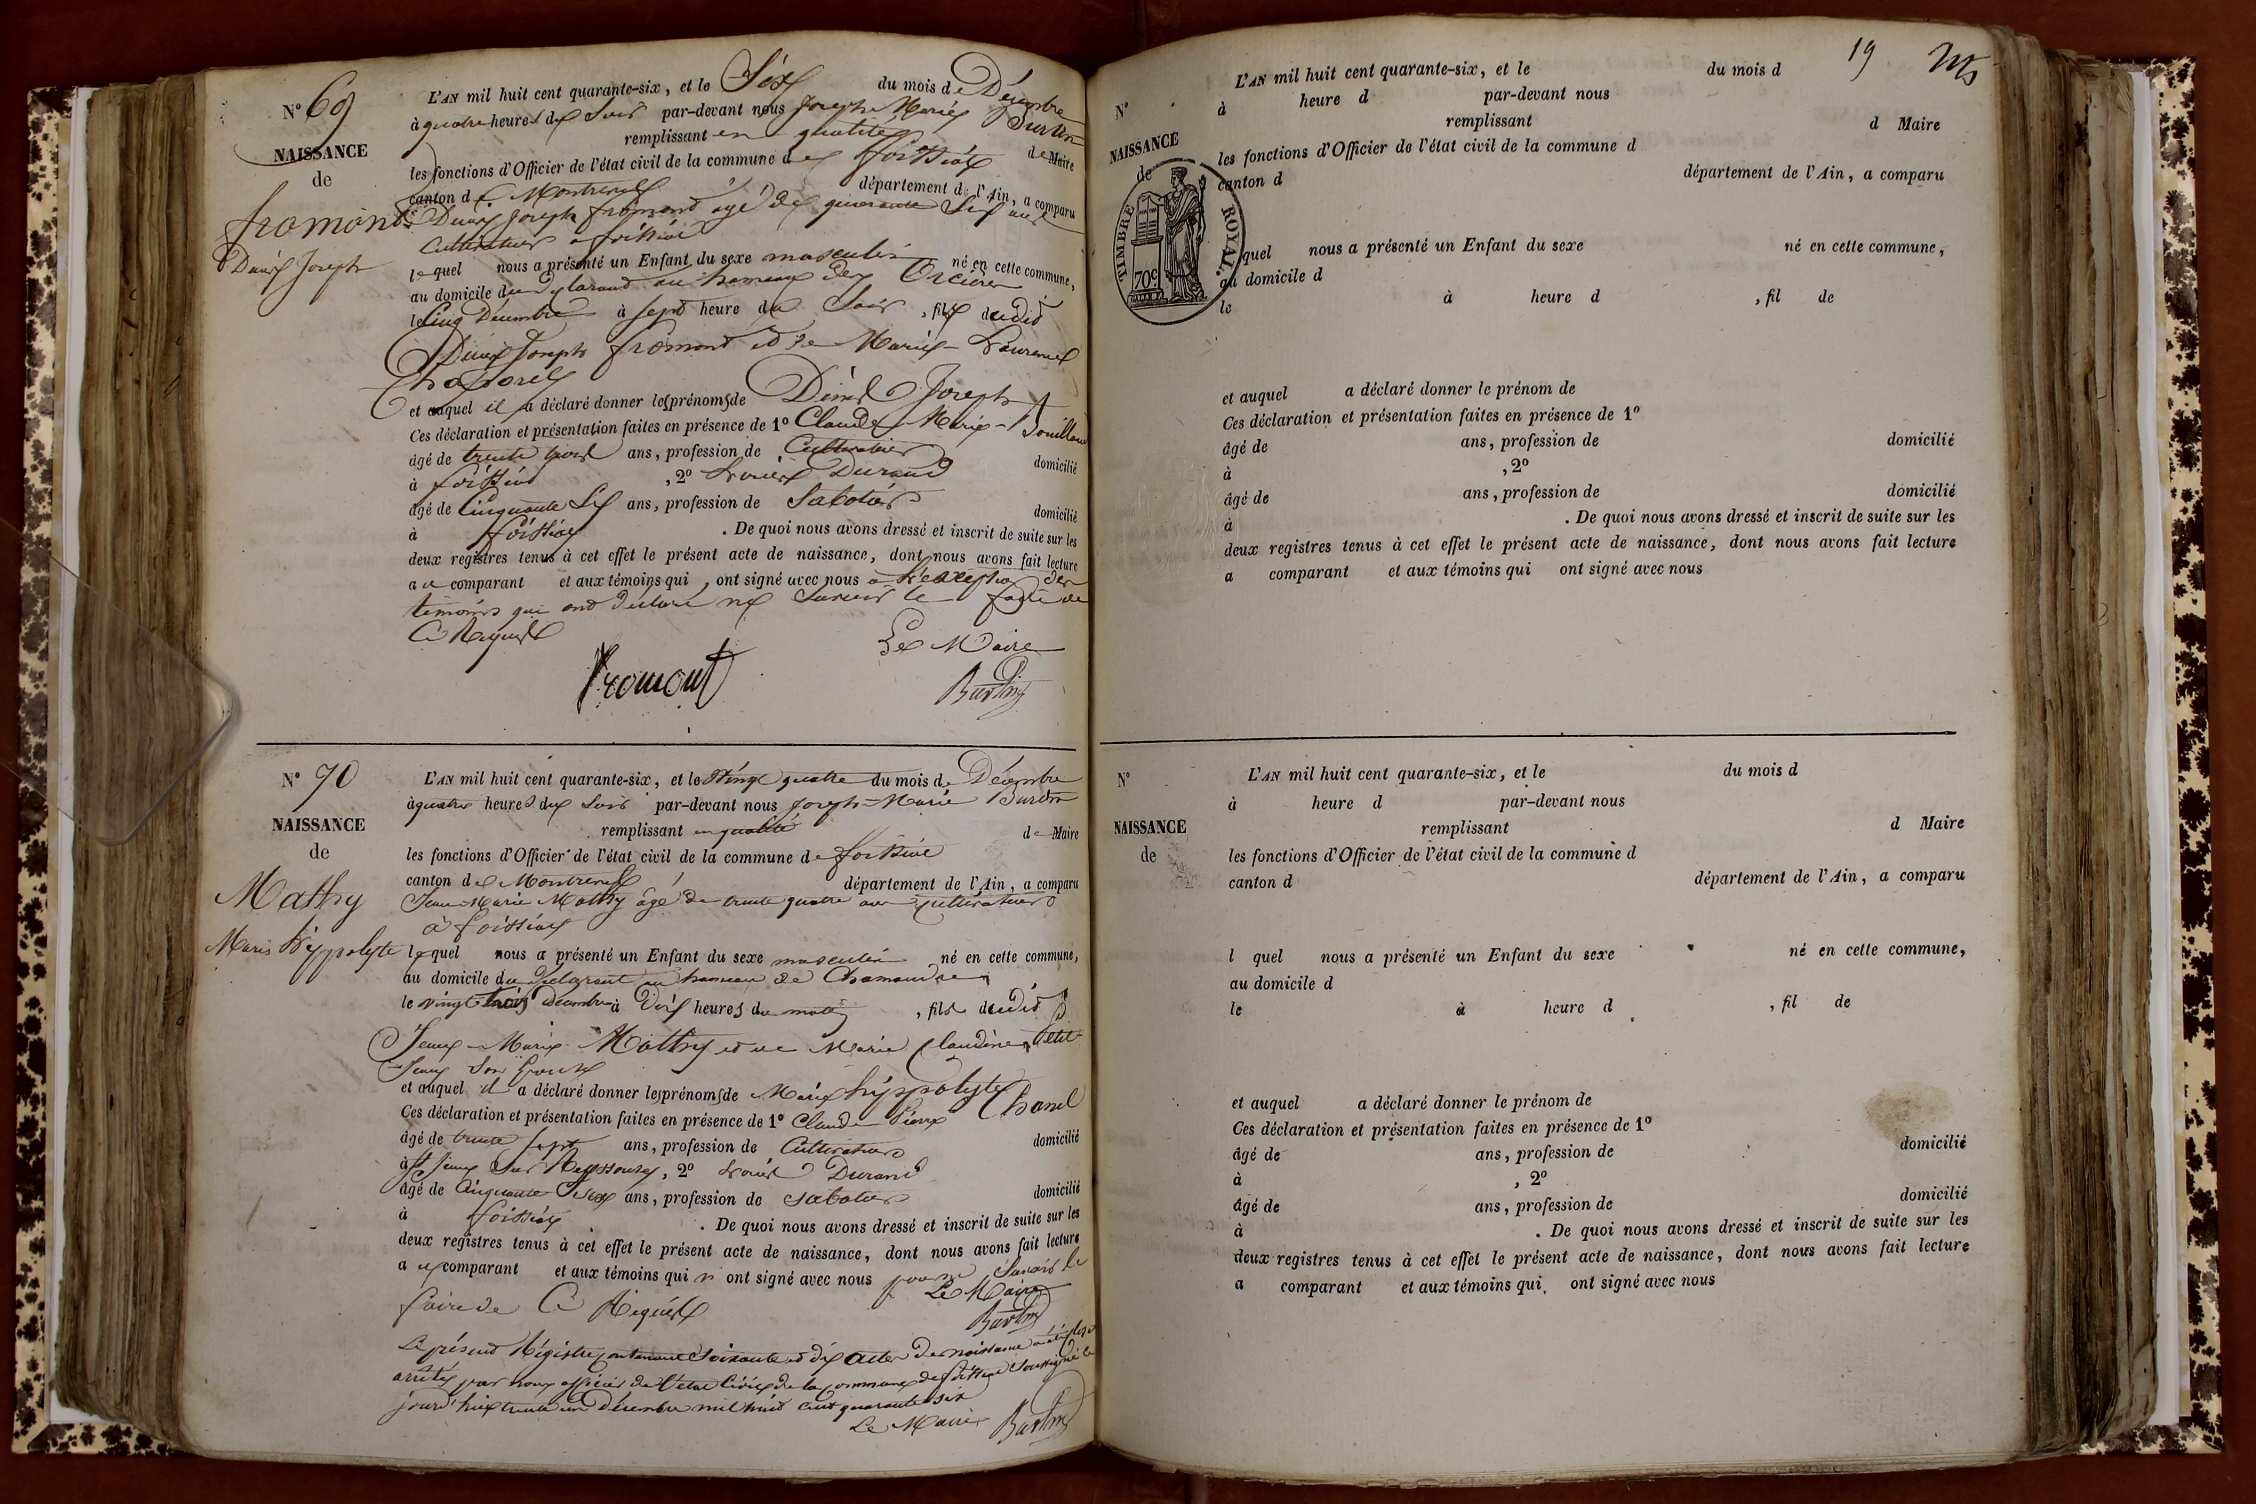 N° 69
NAISSANCE
de
fromond
Denis Joseph
L'AN mil huit cent quarante-six, et le Six du mois de Décembre
à quatre heures du Soir par-devant nous Joseph Marie Burdin
remplissant en qualité de Maire
les fonctions d'Officier de l'état civil de la commune de foissiat
canton de Montrevel département de l'Ain, a comparu
Denis Joseph fromond âgé de quarante Six ans
Cultivateur a foissiat
lequel nous a présenté un Enfant du sexe masculin né en cette commune,
au domicile du déclarant au hameau des
le Cinq Décembre à sept heure du Soir, fils dudit
Denis Joseph fromond et de Marie
et auquel il a déclaré donner les prénoms de Denis Joseph
Ces déclaration et présentation faites en présence de 1° Claude Marie
âgé de trente trois ans, profession de Cultivateur domicilié
à foissiat, 2° Durand
âgé de Cinquante Six ans, profession de Sabotier domicilié
à foissiat. De quoi nous avons dressé et inscrit de suite sur les
deux registres tenus à cet effet le présent acte de naissance, dont nous avons fait lecture
au comparant et aux témoins qui ont signé avec nous a l'exception des
témoins qui ont déclaré ne Savoir le faire de
Ce Requis
Le Maire
fromont
Burdin
N° 70
NAISSANCE
de
Mathy
Marie hyppolyte
L'AN mil huit cent quarante-six, et le Vingt quatre du mois de Décembre
à quatre heures du Soir par-devant nous Joseph-Marie Burdin
remplissant en qualité de Maire
les fonctions d'Officier de l'état civil de la commune de foissiat
canton de Montrevel département de l'Ain, a comparu
Jean Marie Mathy âgé de trente quatre ans Cultivateur
à foissiat
lequel nous a présenté un Enfant du sexe masculin né en cette commune,
au domicile du Déclarant au hameau de Chamandre
le vingt trois décembre à Dix heures du matin, fils dudit
Jean-Marie Mathy et de Marie Claudine Petit
Jean Son Epouse
et auquel il a déclaré donner les prénoms de Marie hyppolyte
Ces déclaration et présentation faites en présence de 1° Claude Pierre Chanel
âgé de trente sept ans, profession de Cultivateur domicilié
à St Jean Sur Reyssouze, 2° Durand
âgé de Cinquante Six ans, profession de Sabotier domicilié
à foissiat. De quoi nous avons dressé et inscrit de suite sur les
deux registres tenus à cet effet le présent acte de naissance, dont nous avons fait lecture
au comparant et aux témoins qui n'ont signé avec nous pour ne Savoir le
faire de Ce Requis
Le Maire
Burdin
Le présent Régistre contenant Soixante et dix actes de naissance a été clos et
arrêté par nous officier de l'état Civil de la commune de foissiat Soussigné ce
jourd'hui trente un Décembre mil huit cent quarante six
Le Maire Burdin
19
N°
NAISSANCE
de
TIMBRE ROYAL.
70 c
L'AN mil huit cent quarante-six, et le du mois d
à heure d par-devant nous
remplissant d Maire
les fonctions d'Officier de l'état civil de la commune d
canton d département de l'Ain, a comparu
quel nous a présenté un Enfant du sexe né en cette commune,
au domicile d
le à heure d , fil de
et auquel a déclaré donner le prénom de
Ces déclaration et présentation faites en présence de 1°
âgé de ans, profession de domicilié
à , 2°
âgé de ans, profession de domicilié
à . De quoi nous avons dressé et inscrit de suite sur les
deux registres tenus à cet effet le présent acte de naissance, dont nous avons fait lecture
a comparant et aux témoins qui ont signé avec nous
N°
NAISSANCE
de
L'AN mil huit cent quarante-six, et le du mois d
à heure d par-devant nous
remplissant d Maire
les fonctions d'Officier de l'état civil de la commune d
canton d département de l'Ain, a comparu
l quel nous a présenté un Enfant du sexe né en cette commune,
au domicile d
le à heure d , fil de
et auquel a déclaré donner le prénom de
Ces déclaration et présentation faites en présence de 1°
âgé de ans, profession de domicilié
à , 2°
âgé de ans, profession de domicilié
à . De quoi nous avons dressé et inscrit de suite sur les
deux registres tenus à cet effet le présent acte de naissance, dont nous avons fait lecture
a comparant et aux témoins qui ont signé avec nous